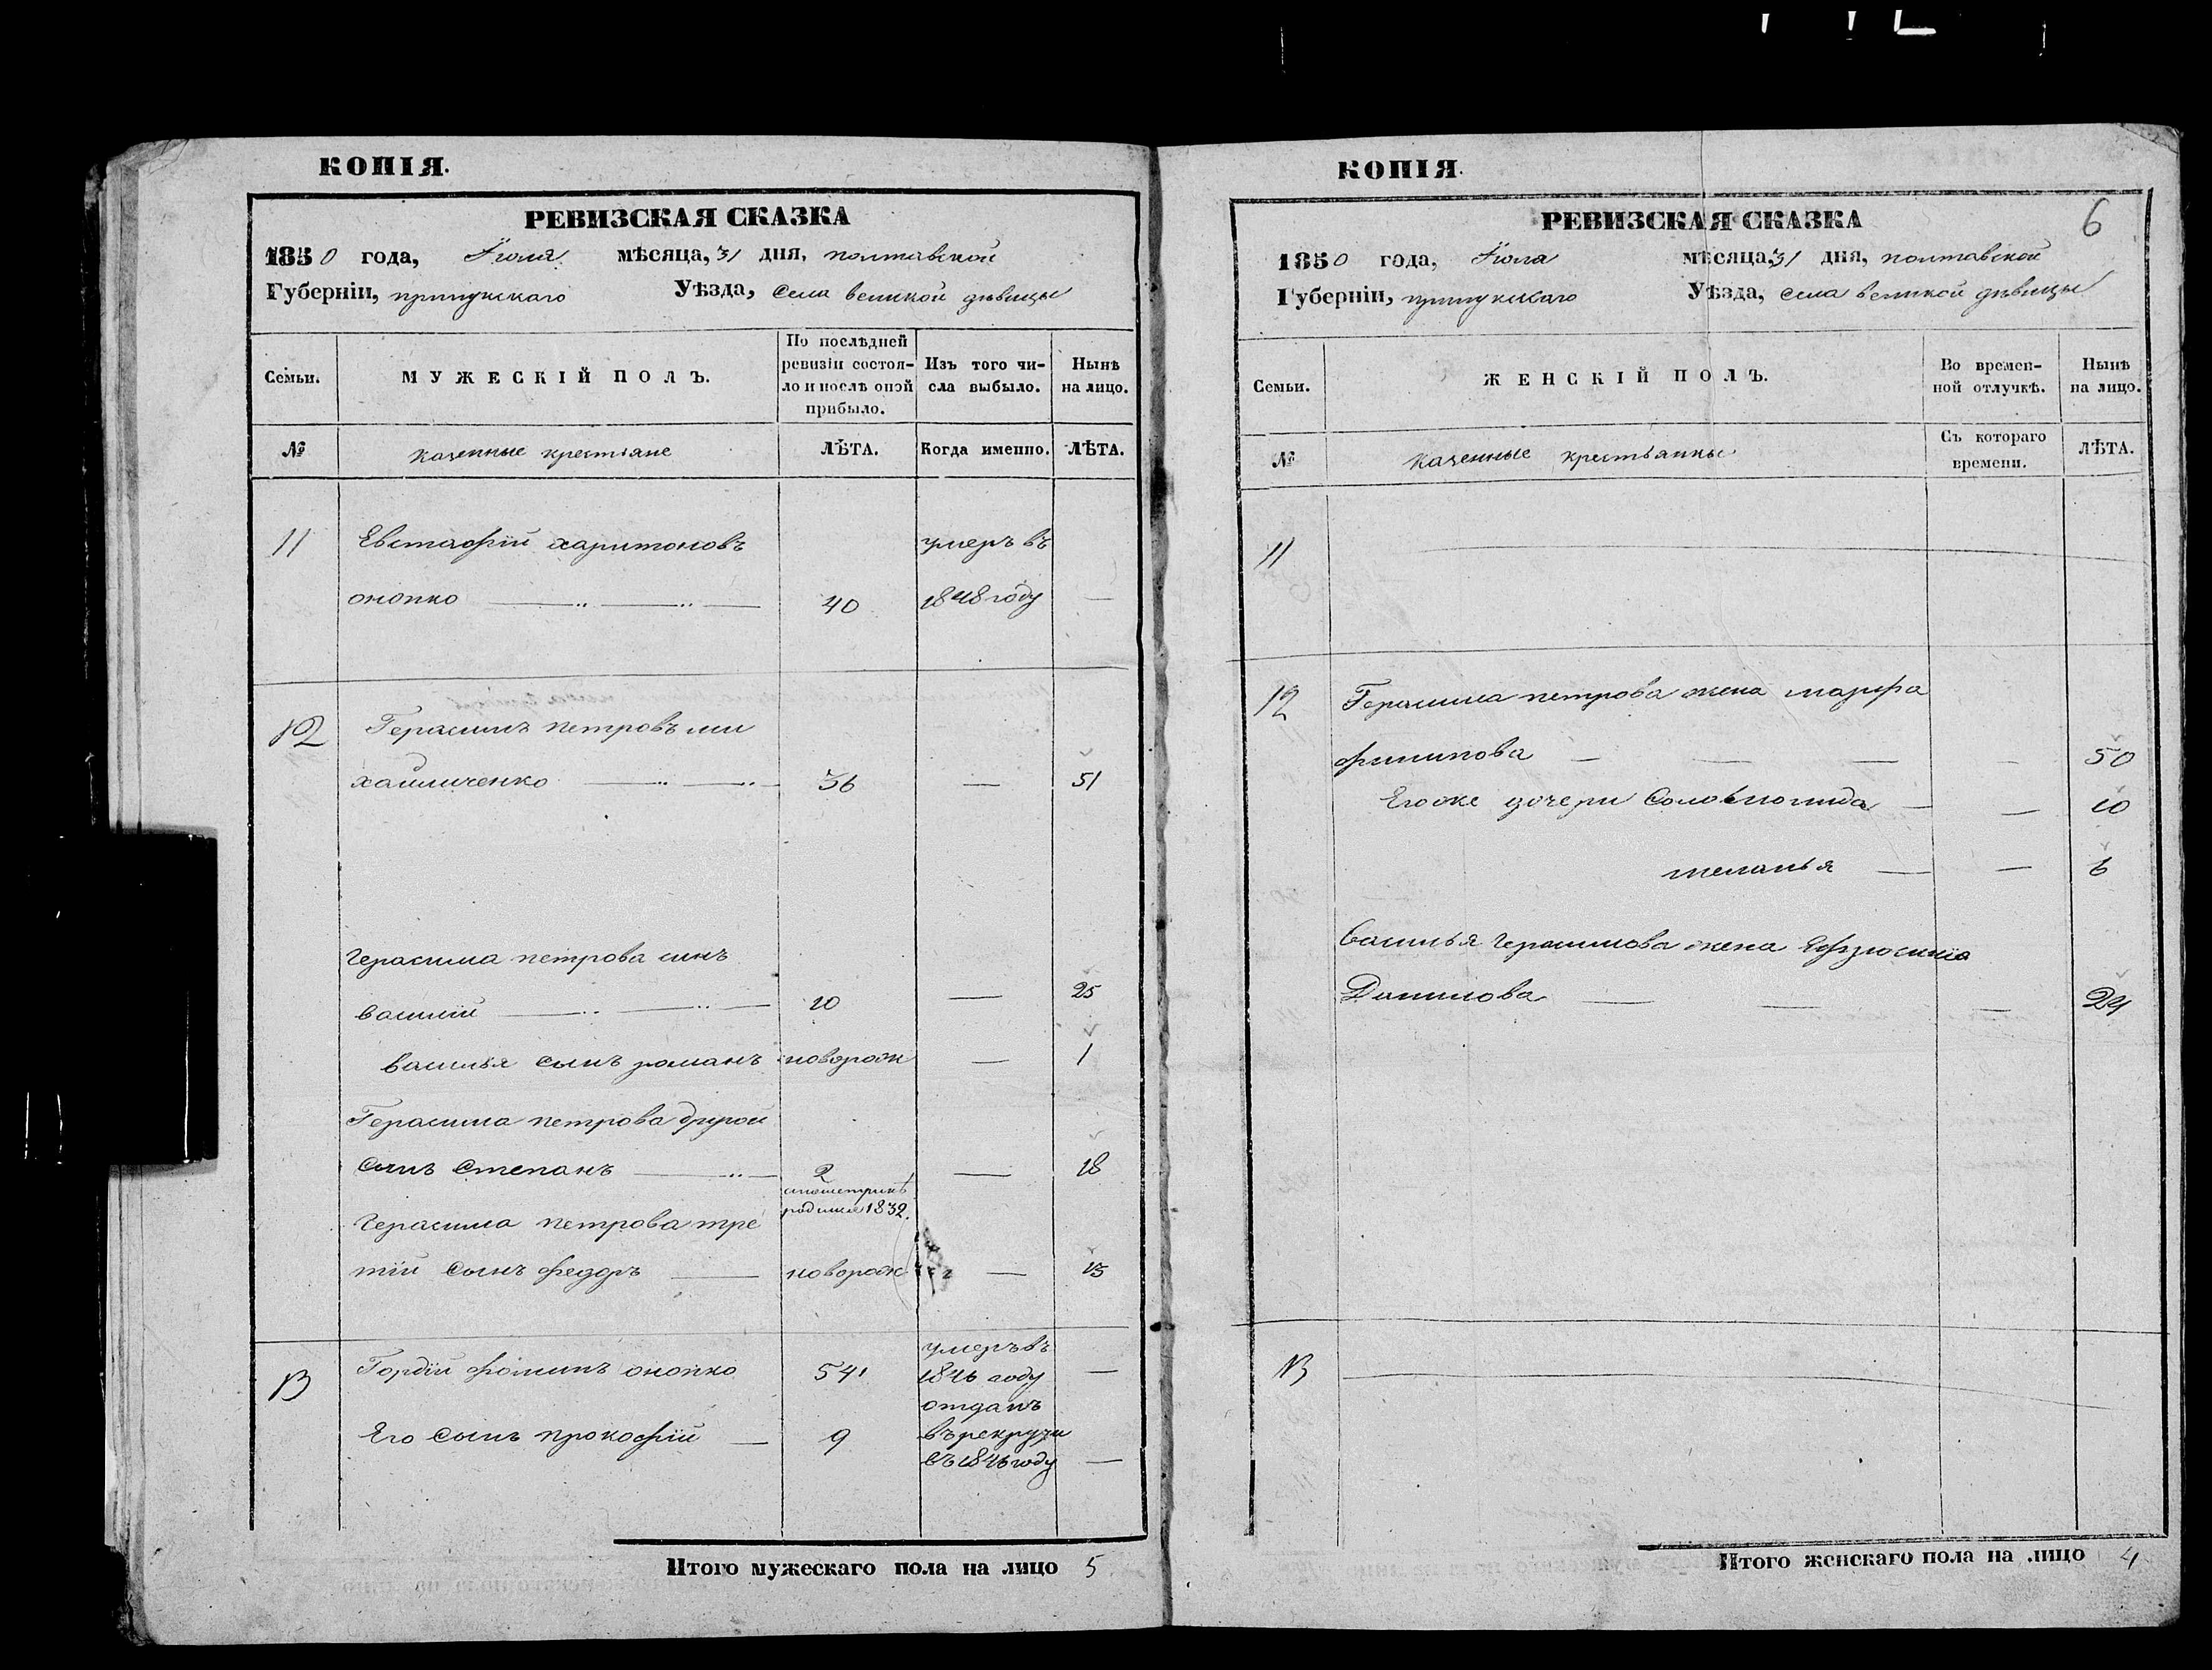 КОПІЯ.
РЕВИЗСКАЯ СКАЗКА
1850 года, Іюля мѣсяца, 31 дня, полтавской
Губерніи, прилукскаго Уѣзда, села великой дѣвицы
Семьи.
МУЖЕСКІЙ ПОЛЪ.
По послѣдней
ревизіи состоя-
ло и послѣ оной
прибыло.
Изъ того чи-
сла выбыло.
Нынѣ
на лицо.
№
казенные крестьяне
ЛѢТА.
Когда именно.
ЛѢТА.
11 Евстафій харитоновъ умеръ въ
онопко 40 1848 году —
12 Герасимъ петровъ ми
хайличенко 36 — 51
Герасима петрова синъ
василій 10 — 25
василья сынъ романъ новорож — 1
Герасима петрова другой
сынъ Степанъ 2 — 18
родился 1832.
Герасима петрова тре
тій сынъ федоръ новорож — 13
13 Гордій фоминъ онопко 54 умеръ въ
1846 году —
Его сынъ прокофій — 9 отданъ
въ рекруты
въ 1846 году —
Итого мужескаго пола на лицо 5
КОПІЯ.
6
РЕВИЗСКАЯ СКАЗКА
1850 года, Іюля мѣсяца, 31 дня, полтавской
Губерніи, прилукскаго Уѣзда, села великой дѣвицы
Семьи.
ЖЕНСКІЙ ПОЛЪ.
Во времен-
ной отлучкѣ.
Нынѣ
на лицо.
№
казенные крестьянки
Съ котораго
времени.
ЛѢТА.
11
12 Герасима петрова жена марфа
филипова — 50
Егоже дочери Соломонида — 10
меланья — 6
василья Герасимова жена Ефросинія
Данилова — 24
13
Итого женскаго пола на лицо 4